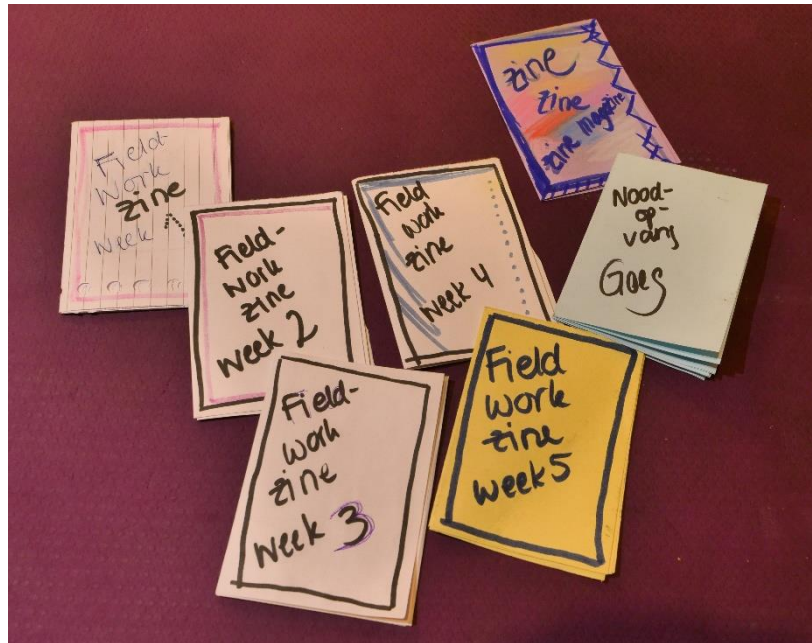 Field-
Work
zine
Week 1
Field-
work
zine
week 2
Field
work
zine
week 4
zine
zine
zine magazine
Nood-
op-
vang
Goes
Field-
work
zine
week 3
Field
work
zine
week 5